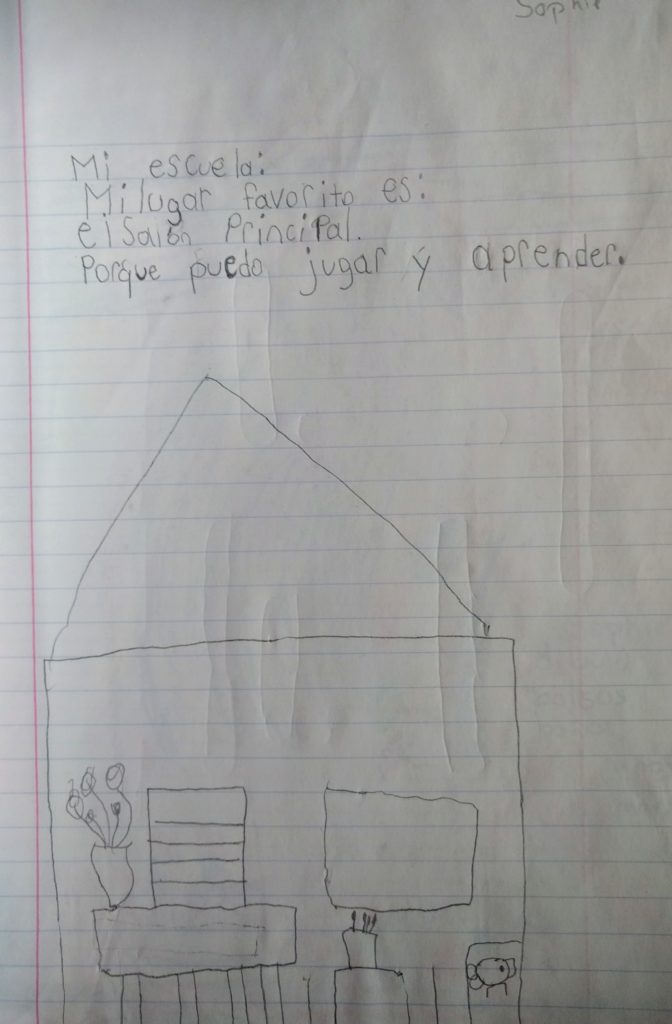 Sophie
Mi escuela:
Mi lugar favorito es:
el Salón Principal.
Porque puedo jugar y aprender.